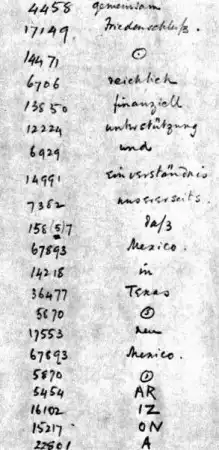 4458 gemeinsam
17149 Friedenschluß.
14471 ⊙
6706 reichlich
13850 finanziell
12224 unterstützung
6929 und
14991 einverständnis
7382 unsrerseits.
158(5)7 Daß
67893 Mexico.
14218 in
36477 Texas
5870 ⊙
17553 neu
67893 Mexico.
5870 ⊙
5454 AR
16102 IZ
15217 ON
22801 A